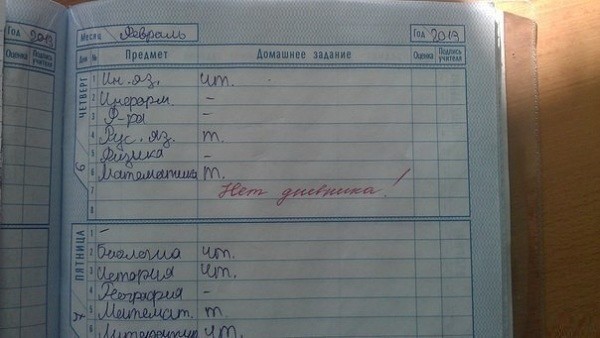 Год 2013
Оценка Подпись учителя
Месяц Февраль Год 2013
Дни № Предмет Домашнее задание Оценка Подпись учителя
ЧЕТВЕРГ 6
1 Ин. яз. чт.
2 Информ. –
3 Ф-ра –
4 Рус. яз. т.
5 Физика –
6 Математика т.
7 Нет дневника!
8
ПЯТНИЦА
1 –
2 Биология чт.
3 История чт.
4 География –
5 Математ. т.
6 Литература чт.